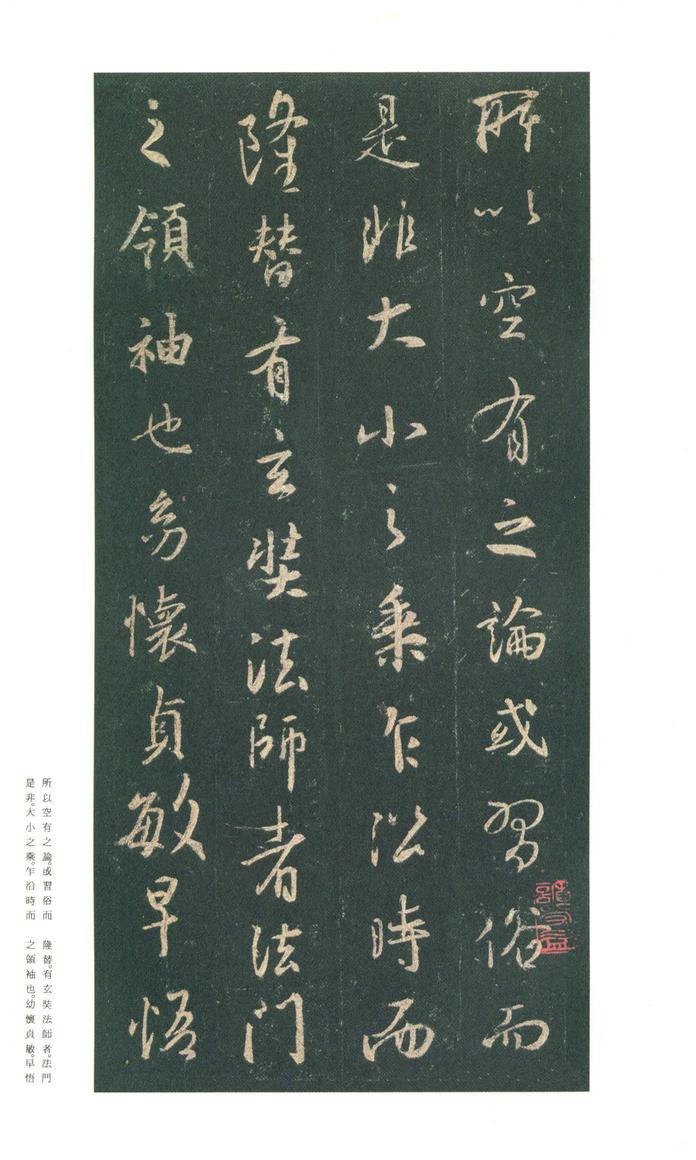 所以空有之論或習俗而
是非大小之乘乍沿時而
隆替有玄奘法師者法門
之領袖也幼懷貞敏早悟
所以空有之論。或習俗而　隆替。有玄奘法師者。法門
是非。大小之乘。乍沿時而　之領袖也。幼懷貞敏。早悟